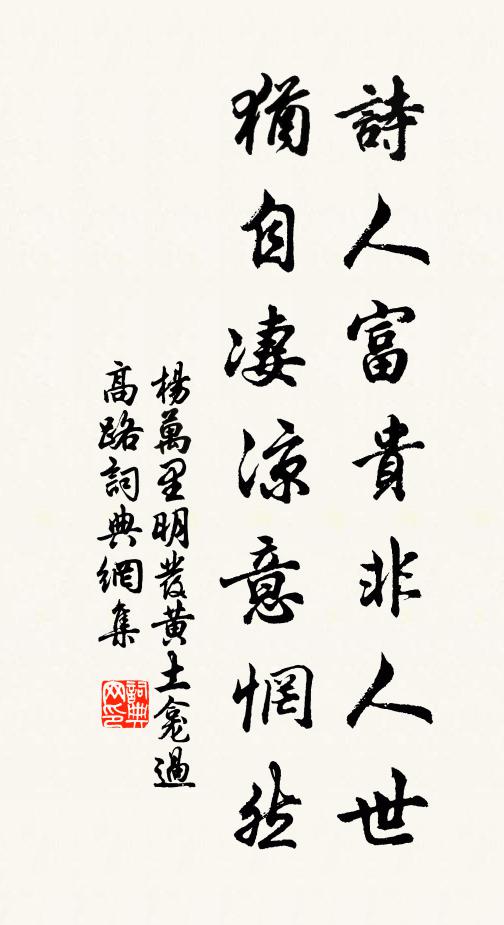 詩人富貴非人世
猶自凄涼意惘然
楊萬里明發黃土龕過
高路詞典網集
詞典网印